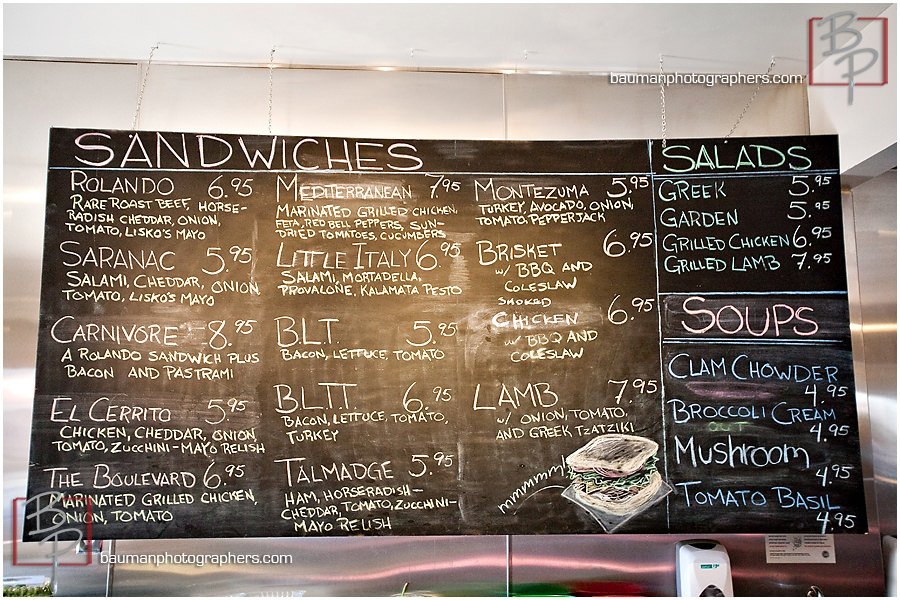 BP
baumanphotographers.com
SANDWICHES
ROLANDO 6.95
RARE ROAST BEEF, HORSE-
RADISH CHEDDAR, ONION,
TOMATO, LISKO'S MAYO
SARANAC 5.95
SALAMI, CHEDDAR, ONION
TOMATO, LISKO'S MAYO
CARNIVORE 8.95
A ROLANDO SANDWICH PLUS
BACON AND PASTRAMI
EL CERRITO 5.95
CHICKEN, CHEDDAR, ONION
TOMATO, ZUCCHINI-MAYO RELISH
THE BOULEVARD 6.95
MARINATED GRILLED CHICKEN,
ONION, TOMATO
MEDITERRANEAN 7.95
MARINATED GRILLED CHICKEN,
FETA, RED BELL PEPPERS, SUN-
DRIED TOMATOES, CUCUMBERS
LITTLE ITALY 6.95
SALAMI, MORTADELLA,
PROVALONE, KALAMATA PESTO
B.L.T. 5.95
BACON, LETTUCE, TOMATO
B.L.T.T. 6.95
BACON, LETTUCE, TOMATO,
TURKEY
TALMADGE 5.95
HAM, HORSERADISH-
CHEDDAR, TOMATO, ZUCCHINI-
MAYO RELISH
MONTEZUMA 5.95
TURKEY, AVOCADO, ONION,
TOMATO, PEPPERJACK
BRISKET 6.95
W/ BBQ AND
COLESLAW
SMOKED
CHICKEN 6.95
W/ BBQ AND
COLESLAW
LAMB 7.95
W/ ONION, TOMATO,
AND GREEK TZATZIKI
SALADS
GREEK 5.95
GARDEN 5.95
GRILLED CHICKEN 6.95
GRILLED LAMB 7.95
SOUPS
CLAM CHOWDER
4.95
BROCCOLI CREAM
OUT 4.95
Mushroom
4.95
TOMATO BASIL
4.95
BP
baumanphotographers.com